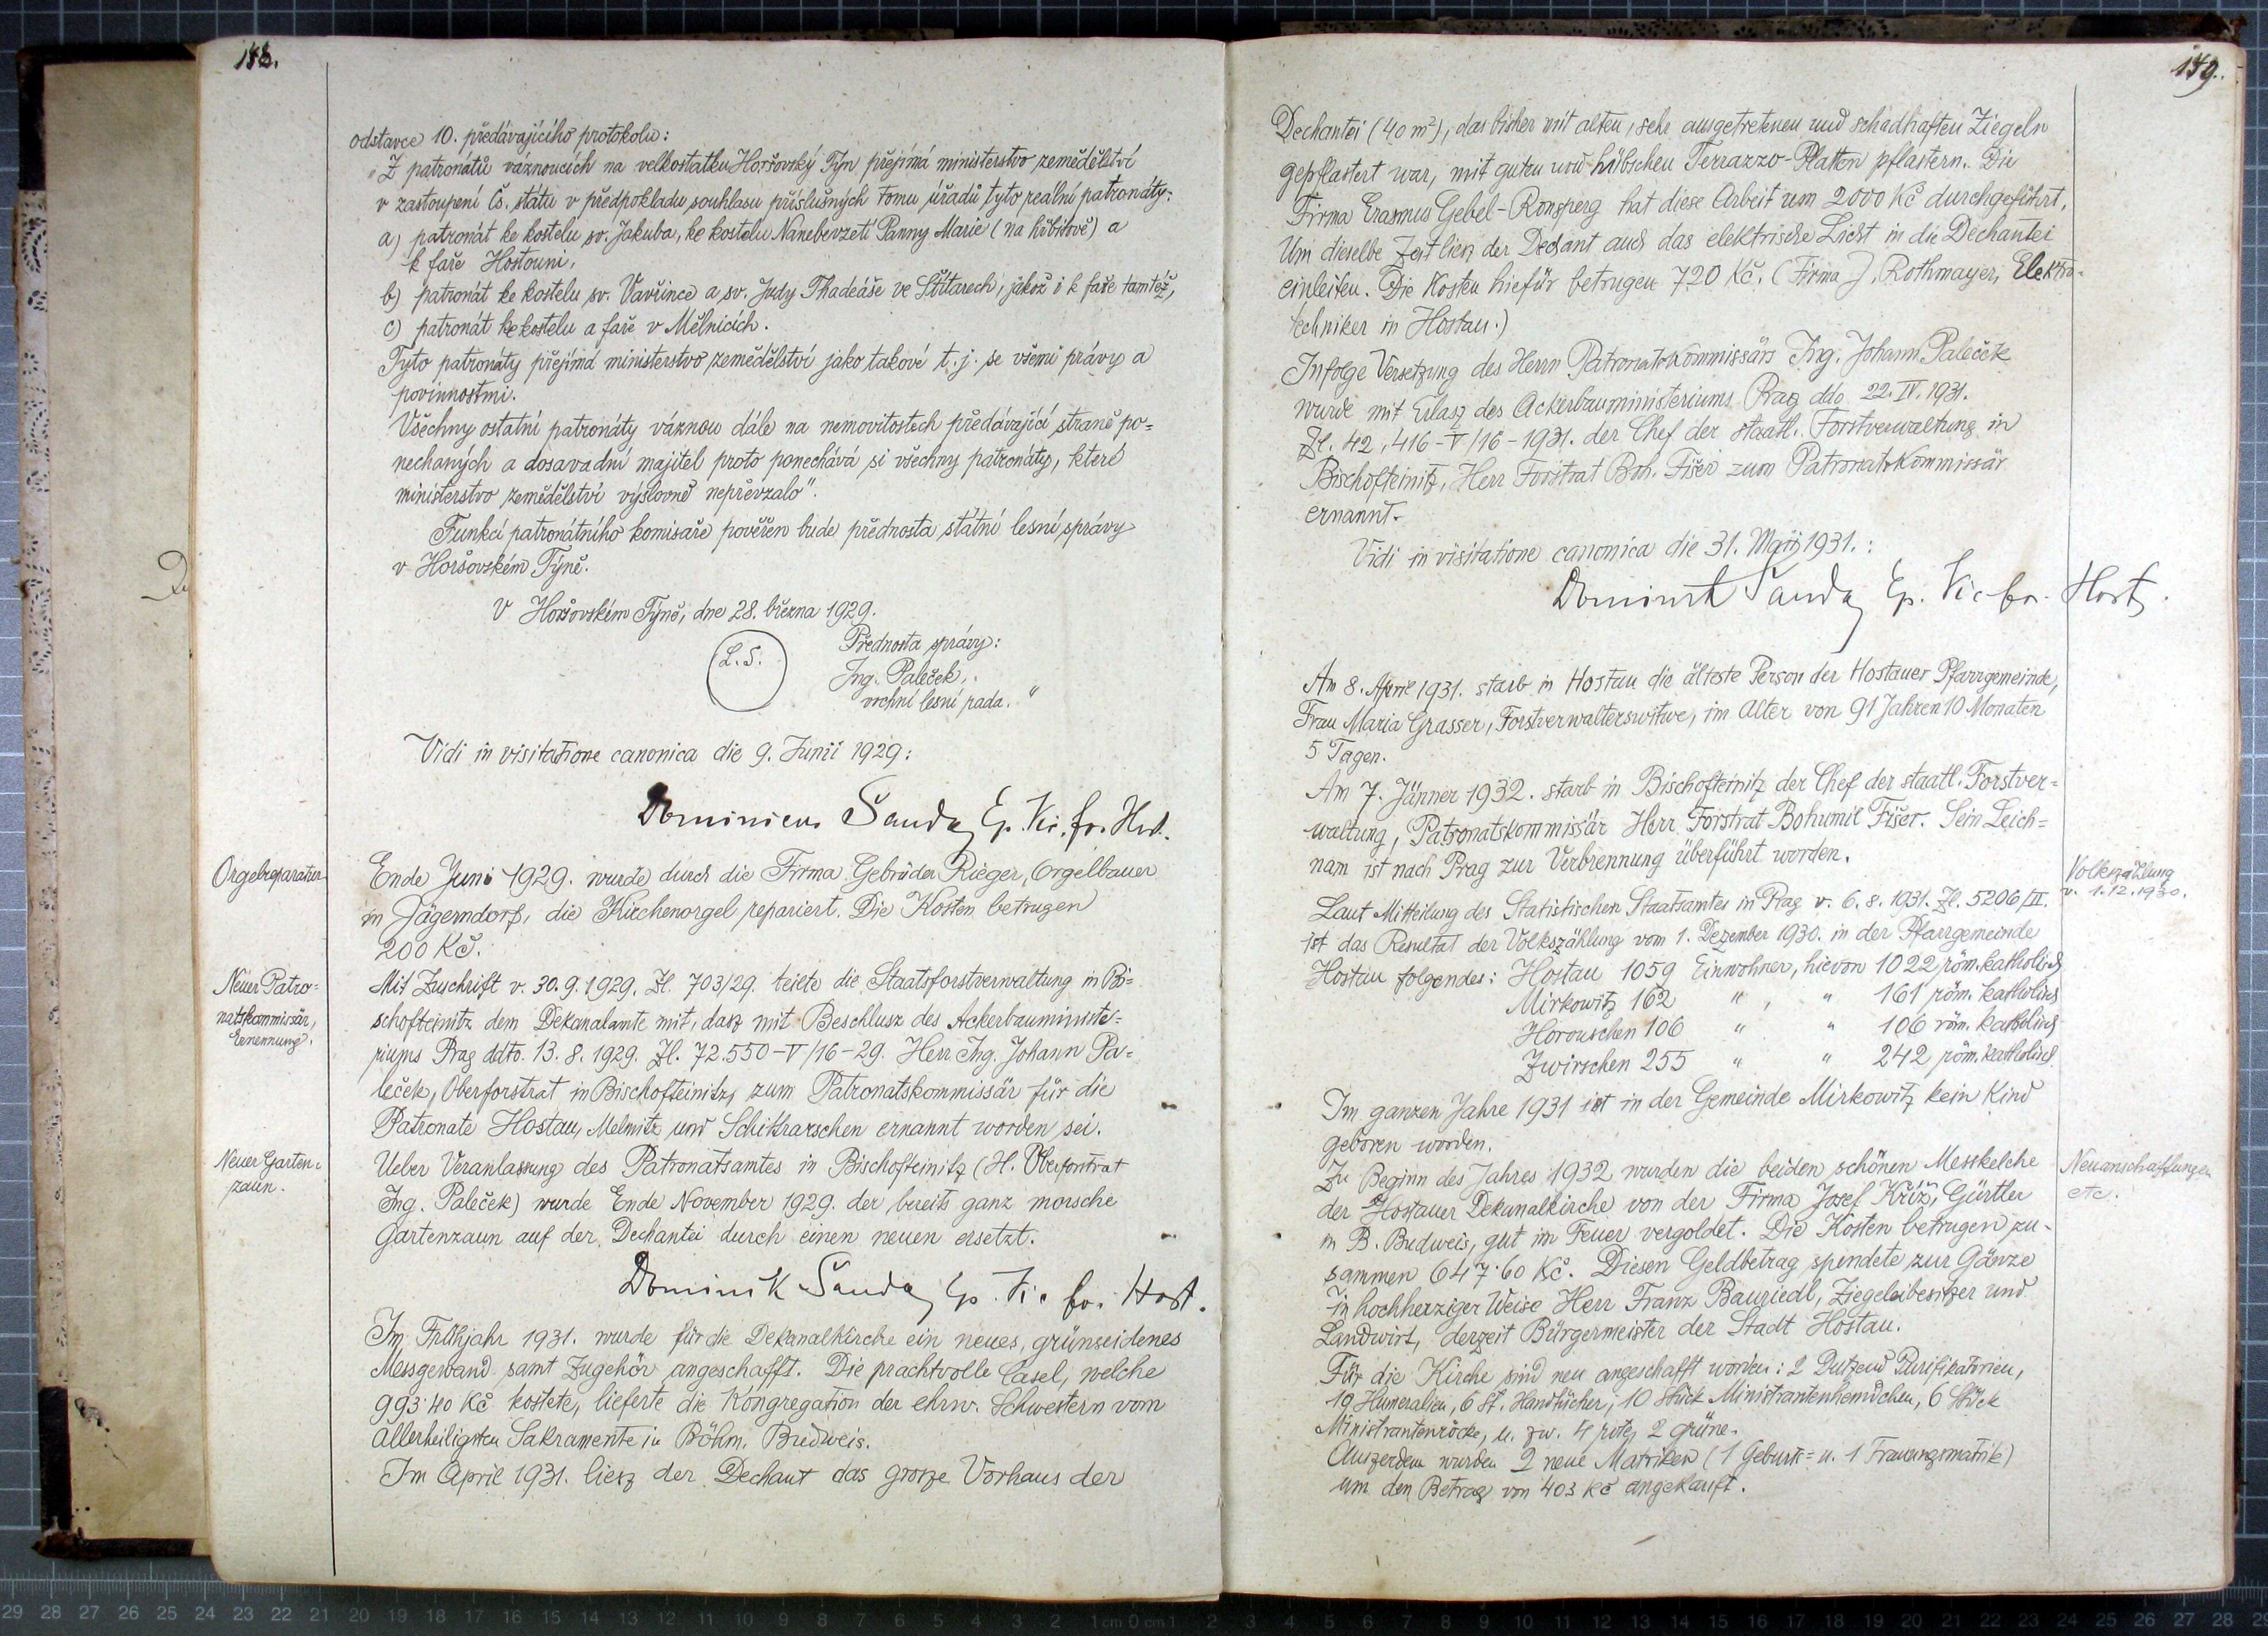 148.
odstavce 10. předávajícího protokolu:
"Z patronátů váznoucích na velkostatku Horšovský Týn přejímá ministerstvo zemědělství
v zastoupení čs. státu v předpokladu souhlasu příslušných tomu úřadů tyto reální patronáty:
a) patronát ke kostelu sv. Jakuba, ke kostelu Nanebevzetí Panny Marie (na hřbitově) a
k faře Hostouni,
b) patronát ke kostelu sv. Vavřince a sv. Judy Thadeáše ve Štítarech, jakož i k faře tamtéž,
c) patronát ke kostelu a faře v Mělnicích.
Tyto patronáty přejímá ministerstvo zemědělství jako takové t.j. se všemi právy a
povinnostmi.
Všechny ostatní patronáty váznou dále na nemovitostech předávající straně po=
nechaných a dosavadní majitel proto ponechává si všechny patronáty, které
ministerstvo zemědělství výslovně nepřevzalo".
Funkcí patronátního komisaře pověřen bude přednosta státní lesní správy
v Horšovském Týně.
V Horšovském Týně, dne 28. března 1929.
L.S.
Přednosta správy:
Ing. Paleček,
vrchní lesní rada."
Vidi in visitatione canonica die 9. Junii 1929:
Dominicus Sanda Ep. Vic. for. Host.
Orgelreparatur
Ende Juni 1929. wurde durch die Firma Gebrüder Rieger, Orgelbauer
in Jägerndorf, die Kirchenorgel repariert. Die Kosten betrugen
200 Kč.
Neuer Patro=
natskommissär,
Ernennung.
Mit Zuschrift v. 30.9.1929. Zl. 703/29. teilte die Staatsforstverwaltung in Bi=
schofteinitz dem Dekanalamte mit, dasz mit Beschlusz des Ackerbauministe=
riums Prag ddto. 13.8.1929. Zl. 72.550-V/16-29. Herr Ing. Johann Pa=
leček, Oberforstrat in Bischofteinitz, zum Patronatskommissär für die
Patronate Hostau, Melmitz und Schittarschen ernannt worden sei.
Neuer Garten=
zaun.
Ueber Veranlassung des Patronatsamtes in Bischofteinitz (H. Oberforstrat
Ing. Paleček) wurde Ende November 1929. der bereits ganz morsche
Gartenzaun auf der Dechantei durch einen neuen ersetzt.
Dominik Sanda Ep. Vic for. Host.
Im Frühjahr 1931. wurde für die Dekanalkirche ein neues, grünseidenes
Messgewand samt Zugehör angeschafft. Die prachtvolle Casel, welche
993·40 Kč kostete, lieferte die Kongregation der ehrw. Schwestern vom
Allerheiligsten Sakramente in Böhm. Budweis.
Im April 1931. liesz der Dechant das grosze Vorhaus der
149.
Dechantei (40 m²), das bisher mit alten, sehr ausgetretenen und schadhaften Ziegeln
gepflastert war, mit guten und hübschen Terrazzo-Platten pflastern. Die
Firma Erasmus Gebel-Ronsperg hat diese Arbeit um 2000 Kč durchgeführt.
Um dieselbe Zeit liesz der Dechant auch das elektrische Licht in die Dechantei
einleiten. Die Kosten hiefür betrugen 720 Kč. (Firma J. Rothmayer, Elektro-
techniker in Hostau.)
Infolge Versetzung des Herrn Patronatskommissärs Ing. Johann Paleček
wurde mit Erlasz des Ackerbauministeriums Prag ddo. 22.IV.1931.
Zl. 42,416-V/16-1931. der Chef der staatl. Forstverwaltung in
Bischofteinitz, Herr Forstrat Boh. Fišer zum Patronatskommissär
ernannt.
Vidi in visitatione canonica die 31. Maji 1931.:
Dominik Sanda Ep. Vic for. Host.
Am 8. April 1931. starb in Hostau die älteste Person der Hostauer Pfarrgemeinde,
Frau Maria Grasser, Forstverwalterswitwe, im Alter von 91 Jahren 10 Monaten
5 Tagen.
Am 7. Jänner 1932. starb in Bischofteinitz der Chef der staatl. Forstver=
waltung, Patronatskommissär Herr Forstrat Bohumil Fišer. Sein Leich=
nam ist nach Prag zur Verbrennung überführt worden.
Volkszählung
v. 1.12.1930.
Laut Mitteilung des Statistischen Staatsamtes in Prag v. 6.8.1931. Zl. 5206/III.
ist das Resultat der Volkszählung vom 1. Dezember 1930. in der Pfarrgemeinde
Hostau folgendes: Hostau 1059 Einwohner, hievon 1022 röm. katholisch
Mirkowitz 162 " , " 161 röm. katholisch
Horouschen 106 " " 106 röm. katholisch
Zwirschen 255 " " 242 röm. katholisch
Im ganzen Jahre 1931 ist in der Gemeinde Mirkowitz kein Kind
geboren worden.
Neuanschaffungen
etc.
Zu Beginn des Jahres 1932 wurden die beiden schönen Messkelche
der Hostauer Dekanalkirche von der Firma Josef Kříž, Gürtler
in B. Budweis, gut im Feuer vergoldet. Die Kosten betrugen zu-
sammen 647·60 Kč. Diesen Geldbetrag spendete zur Gänze
in hochherziger Weise Herr Franz Bauriedl, Ziegeleibesitzer und
Landwirt, derzeit Bürgermeister der Stadt Hostau.
Für die Kirche sind neu angeschafft worden: 2 Dutzend Purifikatorien,
19 Humeralien, 6 St. Handtücher, 10 Stück Ministrantenhemdchen, 6 Stück
Ministrantenröcke, u. zw. 4 rote, 2 grüne.
Auszerdem wurden 2 neue Matriken (1 Geburts= u. 1 Trauungsmatrik)
um den Betrag von 403 Kč angekauft.